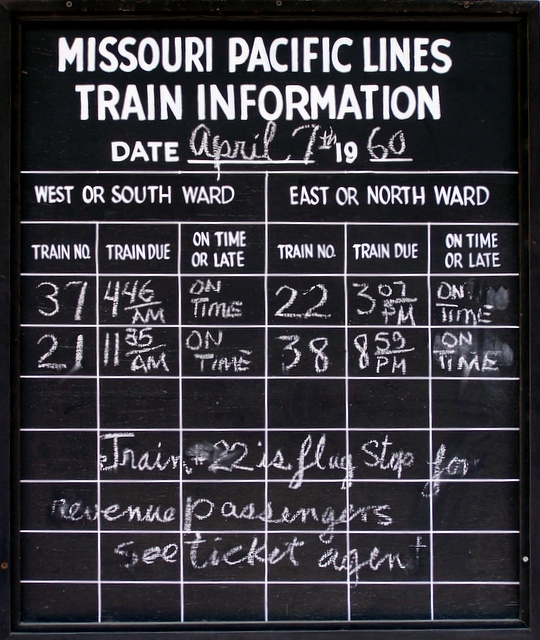 MISSOURI PACIFIC LINES
TRAIN INFORMATION
DATE April 7th 1960
WEST OR SOUTH WARD EAST OR NORTH WARD
TRAIN NO. TRAIN DUE ON TIME OR LATE TRAIN NO. TRAIN DUE ON TIME OR LATE
37 4 46 AM ON TIME 22 3 07 PM ON TIME
21 11 35 AM ON TIME 38 8 59 PM ON TIME
Train #22 is flag Stop for
revenue passengers
see ticket agent